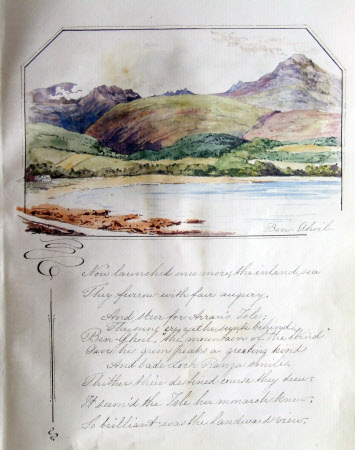 Ben Ghoil.
Now launch'd once more, the inland sea
They furrow with fair augury,
And steer for Arran's Isle;
The sun, ere yet he sunk behind
Ben-Ghoil, "the mountain of the wind"
Gave his grim peaks a greeting kind
And bade Loch Ranza smile.
Thither their destined course they drew;
It seem'd the Isle her monarch knew,
So brilliant was the landward view,